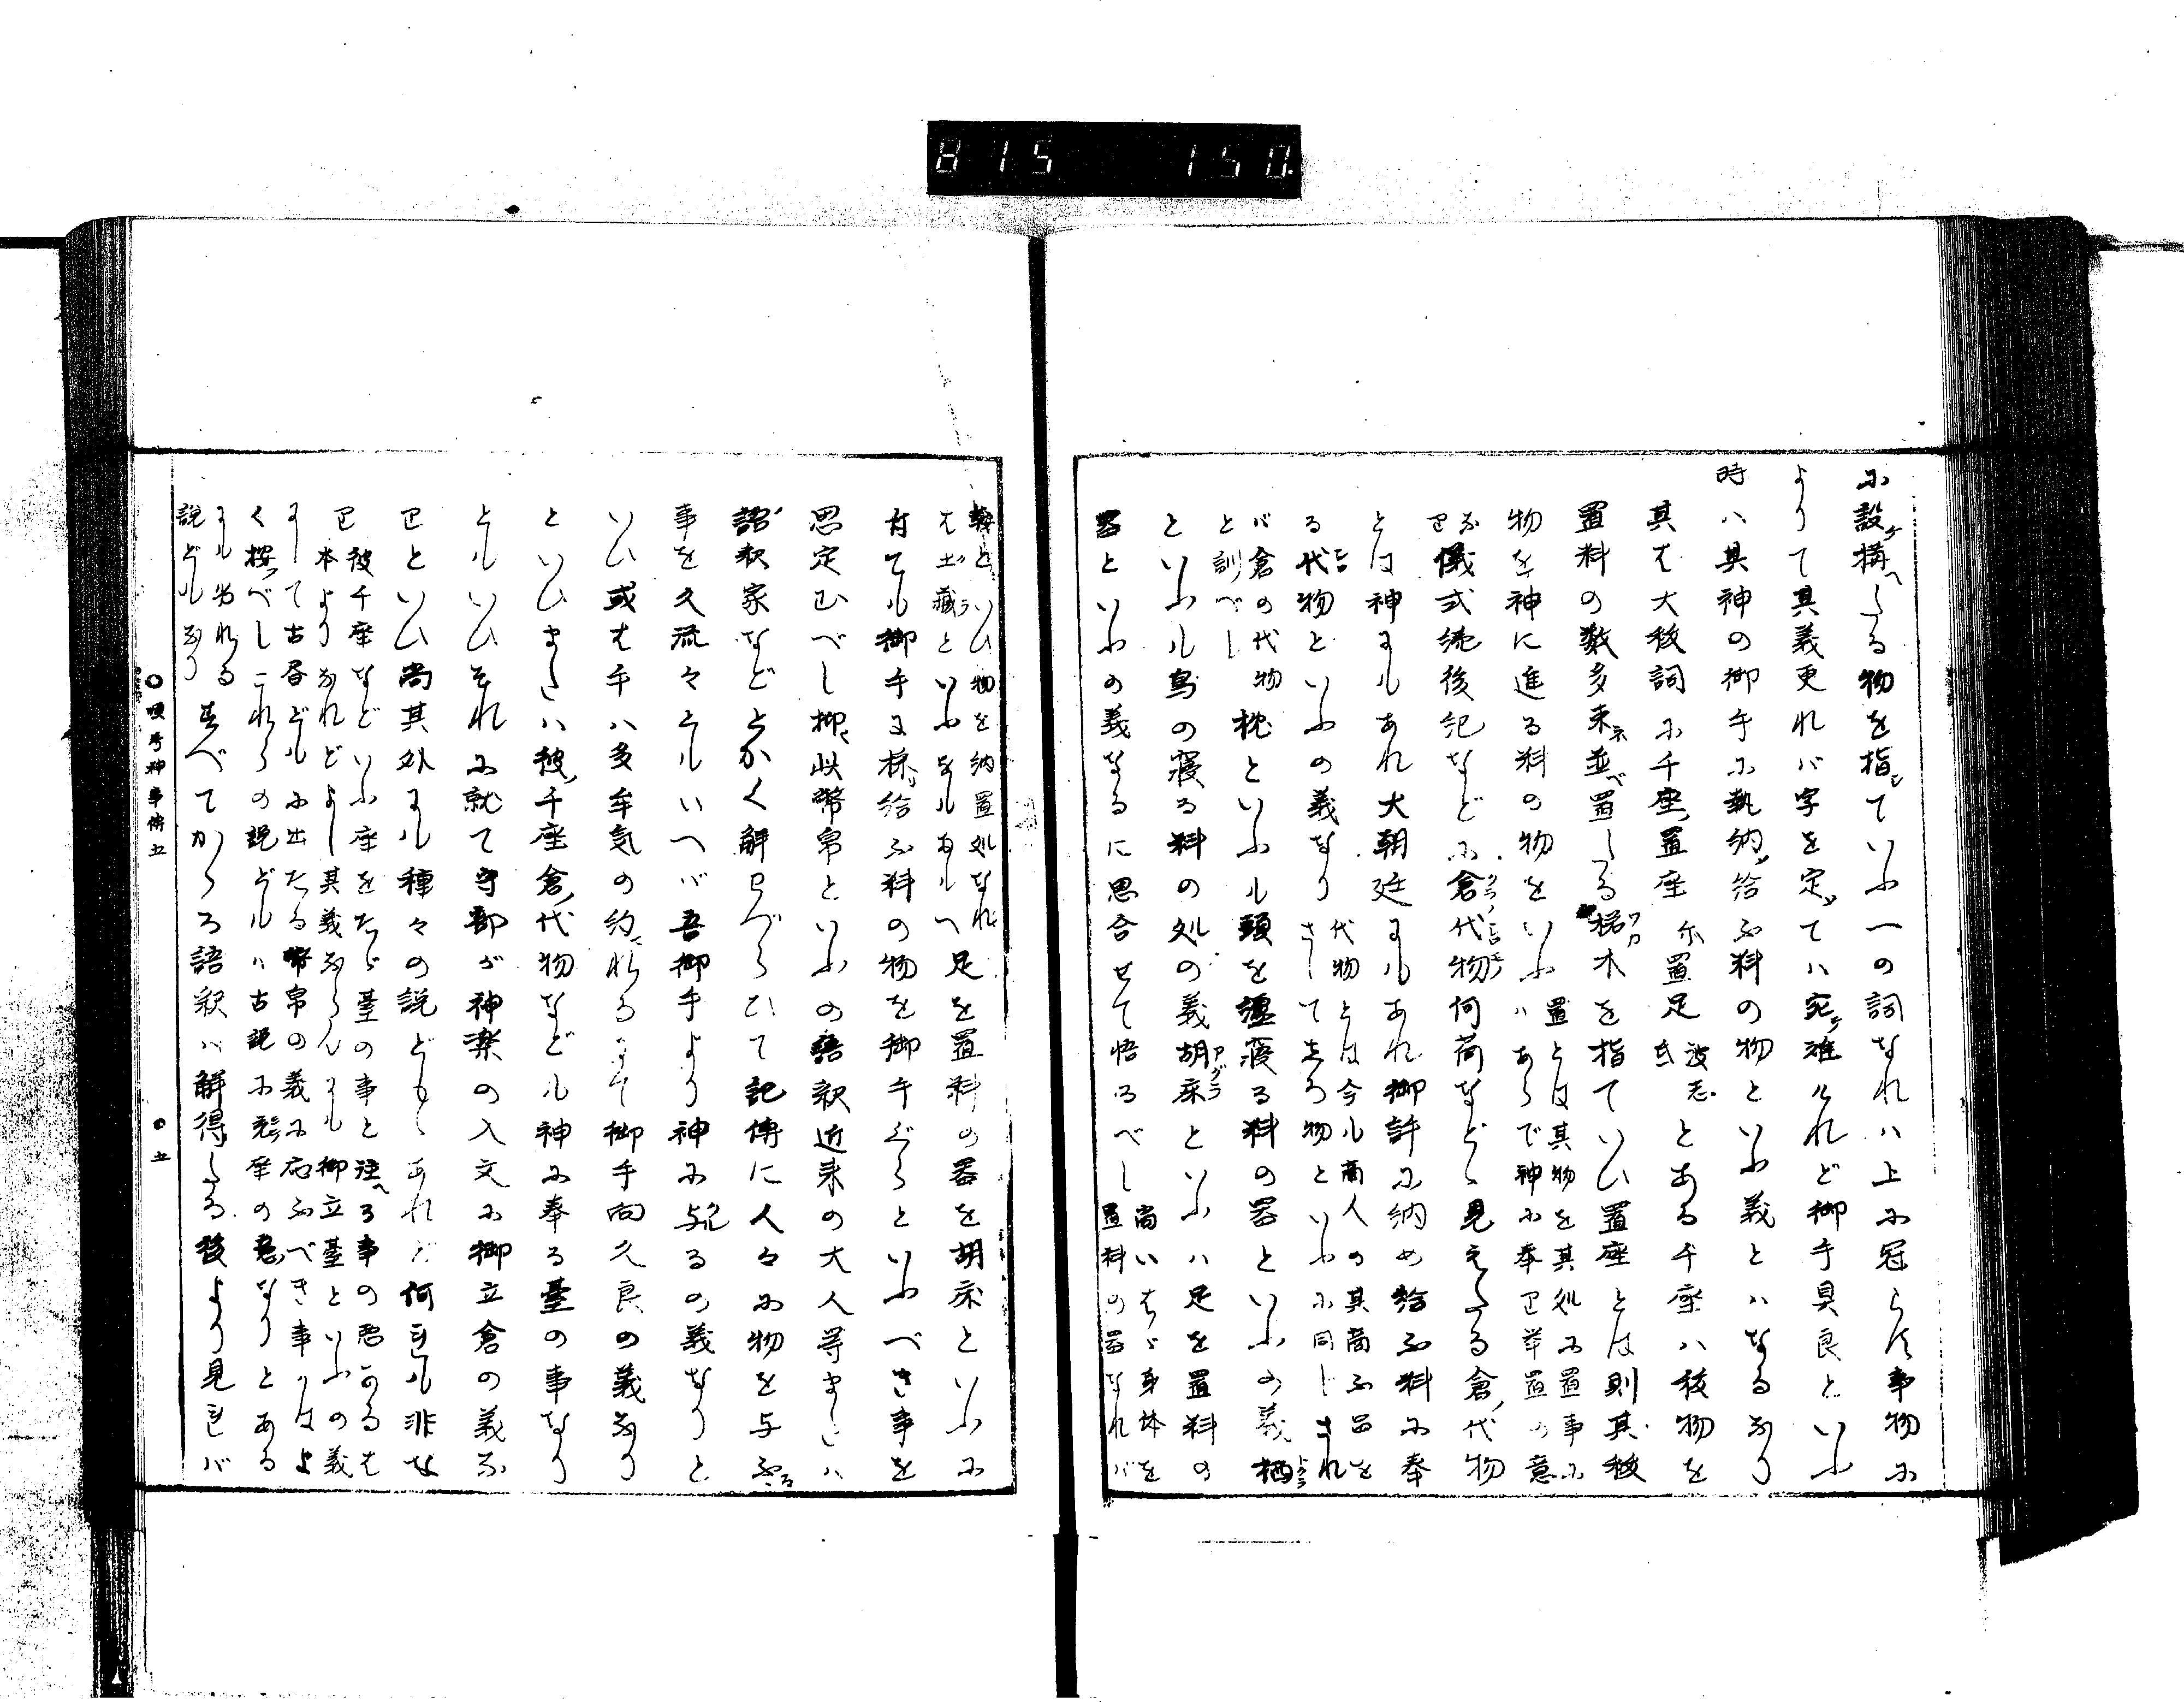 815 150.
に設ケ構へたる物を指していふ一の詞なれハ上に冠らす事物に
よりて其義更れバ字を定めてハ宛ケ難けれど御手具良といふ
時ハ其神の御手に執納め給ふ料の物といふ義とハなるなり
其は大祓詞に千座置座尓置足波志弖とある千座ハ祓物を
置料の数多末ネ並べ置たる楉木を指ていひ置座とは則其祓
物を神に進る料の物をいふ置とは其物を其処に置事にハあらで神に奉り挙置の意
なり儀式続後紀などに倉代物何荷などゝ見えたる倉代物
とは神にもあれ大朝廷にもあれ御許に納め給ふ料に奉
る代物といふの義なり代物とは今も商人の其商ふ品をさして志ろ物といふに同じされ
バ倉の代物と訓べし枕といふも頭を纏寝る料の器といふの義栖
といふも鳥の寝る料の処の義胡床といふハ足を置料の
器といふの義なるに思合せて悟るべし尚いはゞ身体を置料の器なれバ
鞍といひ物を納置処なれバ土蔵といふなるなるへ足を置料の器を胡床といふに
対ても御手に採り給ふ料の物を御手ぐらといふべき事を
思定むべし抑此幣帛といふの語釈近来の大人等またハ
諸釈家などとかく解ひて記傳に人々に物を与ふる
事を久流々ともいへバ吾御手より神に与るの義なりと
いひ或は手ハ多牟気の約れるにて御手向久良の義なり
といひまたハ彼千座倉代物なども神に奉る臺の事なり
ともいひそれに就て守部が神楽の入文に御立倉の義な
りといひ尚其外にも種々の説どもゝあれど何れも非な
り彼千座などいふ座をたゞ臺の事と注へる事の
本よりなれどよし其義ならんにも御立臺といふの義
にして古書どもに出たる幣帛の義に応ふべき事かはよ
く按べしこれらの説どもハ古説に座の意なりとある
にもれる説どもなりすべてかゝる語釈バ解得たる後より見れバ
○唄考神事傳五
○五